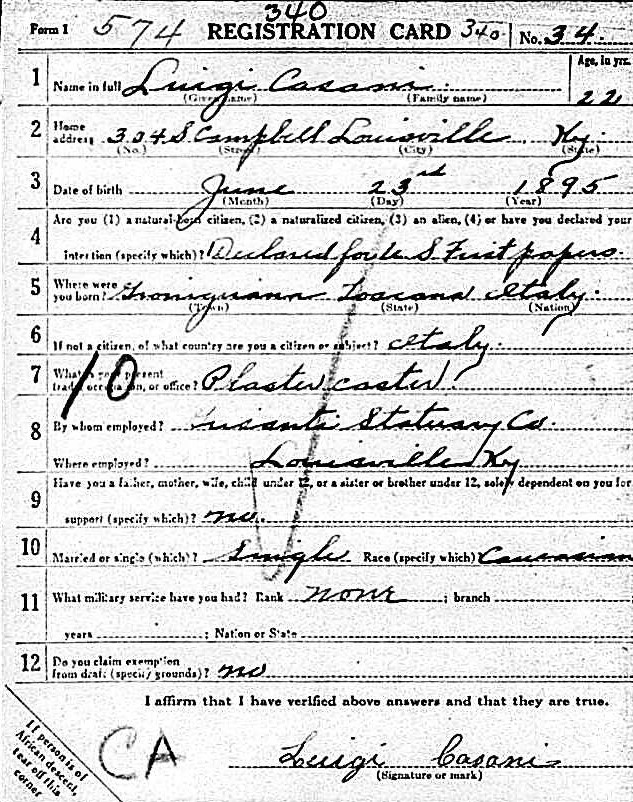 340
Form 1 574 REGISTRATION CARD 340 No. 34.
Age, in yrs.
1 Name in full Luigi Casani. 22
(Given name) (Family name)
2 Home address 304 S Campbell Louisville Ky.
(No.) (Street) (City) (State)
3 Date of birth June 23rd 1895
(Month) (Day) (Year)
Are you (1) a natural-born citizen, (2) a naturalized citizen, (3) an alien, (4) or have you declared your
4 intention (specify which)? Declared for U S First papers.
5 Where were you born? Toscana Italy.
(Town) (State) (Nation)
6 If not a citizen, of what country are you a citizen or subject? Italy.
10
7 What is your present trade, occupation, or office? Plaster caster
8 By whom employed? Statuary Co.
Where employed? Louisville Ky
9 Have you a father, mother, wife, child under 12, or a sister or brother under 12, solely dependent on you for
support (specify which)? no.
10 Married or single (which)? Single Race (specify which) Caucasian
11 What military service have you had? Rank none ; branch
years ; Nation or State
12 Do you claim exemption from draft (specify grounds)? no
I affirm that I have verified above answers and that they are true.
If person is of
African descent,
tear off this
corner
CA
Luigi Casani
(Signature or mark)